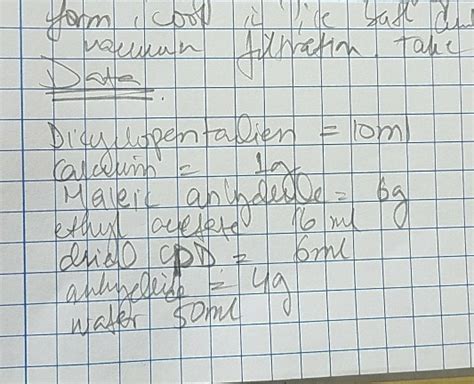 form, cool in ice bath and
vacuum filtration. Take
Data
Dicyclopentadien = 10ml
calcium = 1g
Maleic anhydride = 6g
ethyl acetate 16 ml
dried CPD = 6ml
anhydride = 4g
water 50ml